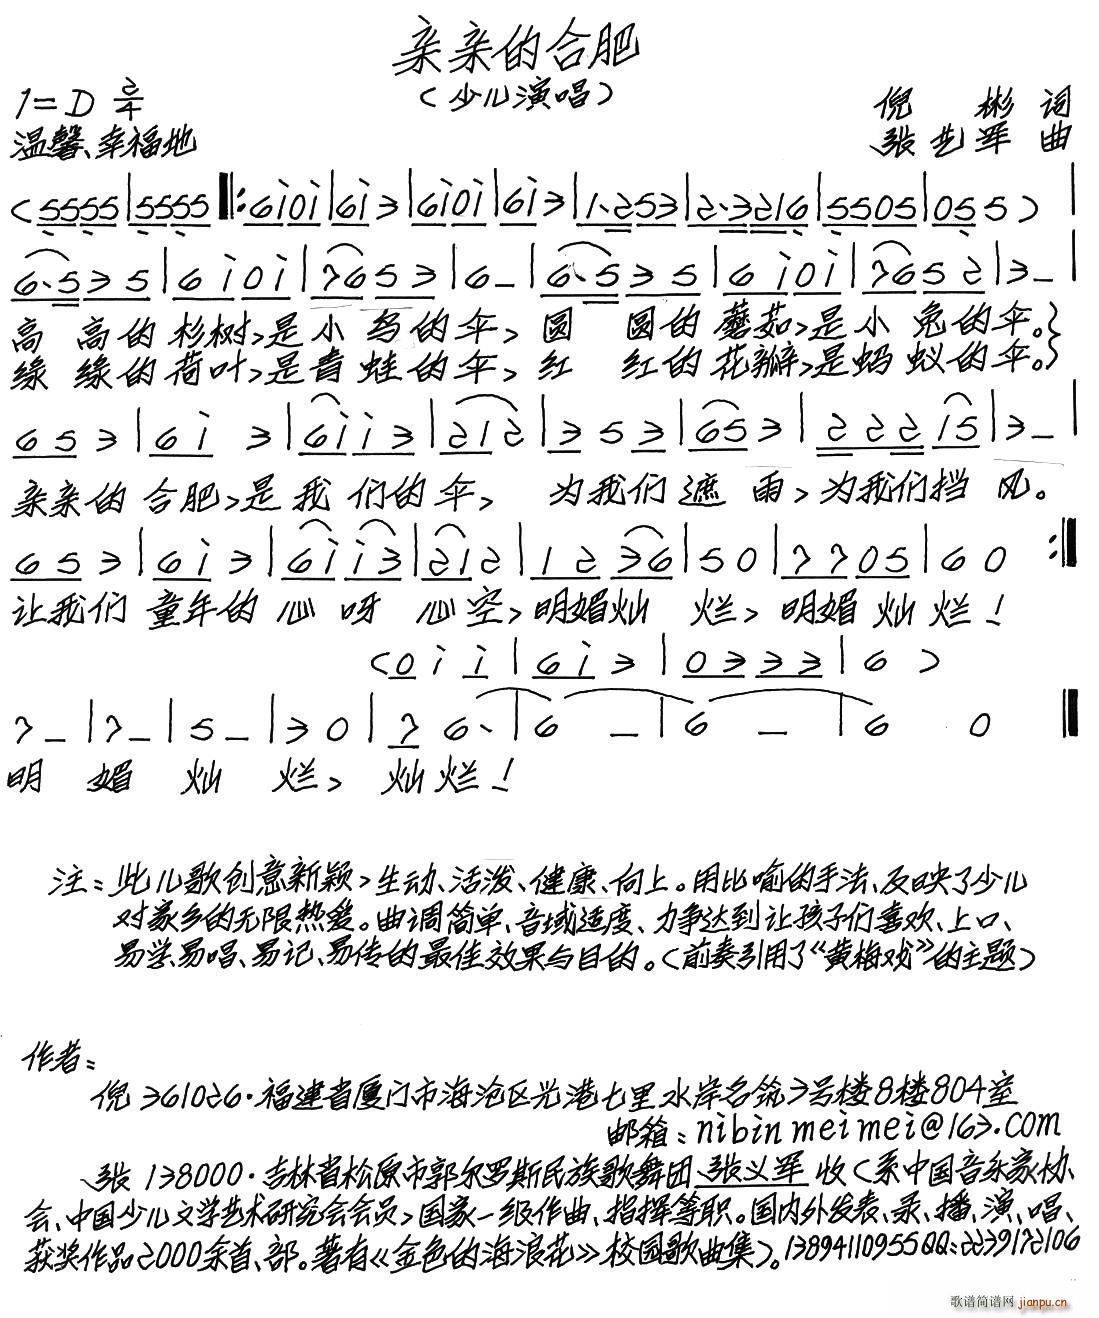 亲亲的合肥
(少儿演唱)
1=D 2/4
倪 彬 词
温馨、幸福地
张艺军 曲
(5555|5555‖:6i0i|6i3|6i0i|6i3|1·253|2·3216|5505|055)|
6·535|6i0i|7653|6-|6·535|6i0i|7652|3-|
高 高的杉树,是小鸟的伞,圆 圆的蘑茹,是小兔的伞。}
缘 缘的荷叶,是青蛙的伞,红 红的花瓣,是蚂蚁的伞。}
653|6i3|6ii3|212|353|653|22215|3-|
亲亲的合肥,是我们的伞, 为我们遮雨,为我们挡风。
653|6i3|6ii3|212|1236|50|7705|60:‖
让我们童年的心呀心空,明媚灿烂,明媚灿烂!
(0ii|6i3|0333|6)
7-|7-|5-|30|76·|6-|6-|60‖
明媚灿烂,灿烂!
注:此儿歌创意新颖,生动、活泼、健康、向上。用比喻的手法、反映了少儿
对家乡的无限热爱。曲调简单、音域适度、力争达到让孩子们喜欢、上口、
易学、易唱、易记、易传的最佳效果与目的。(前奏引用了《黄梅戏》的主题)
作者:
倪 361026·福建省厦门市海沧区兴港七里水岸名筑3号楼8楼804室
邮箱:nibinmeimei@163.com
张 138000·吉林省松原市郭尔罗斯民族歌舞团张义军收(系中国音乐家协
会、中国少儿文学艺术研究会会员,国家一级作曲、指挥等职。国内外发表、录、播、演、唱、
获奖作品2000余首、部。著有《金色的海浪花》校园歌曲集)。13894110955QQ:2239172106
歌谱简谱网 jianpu.cn